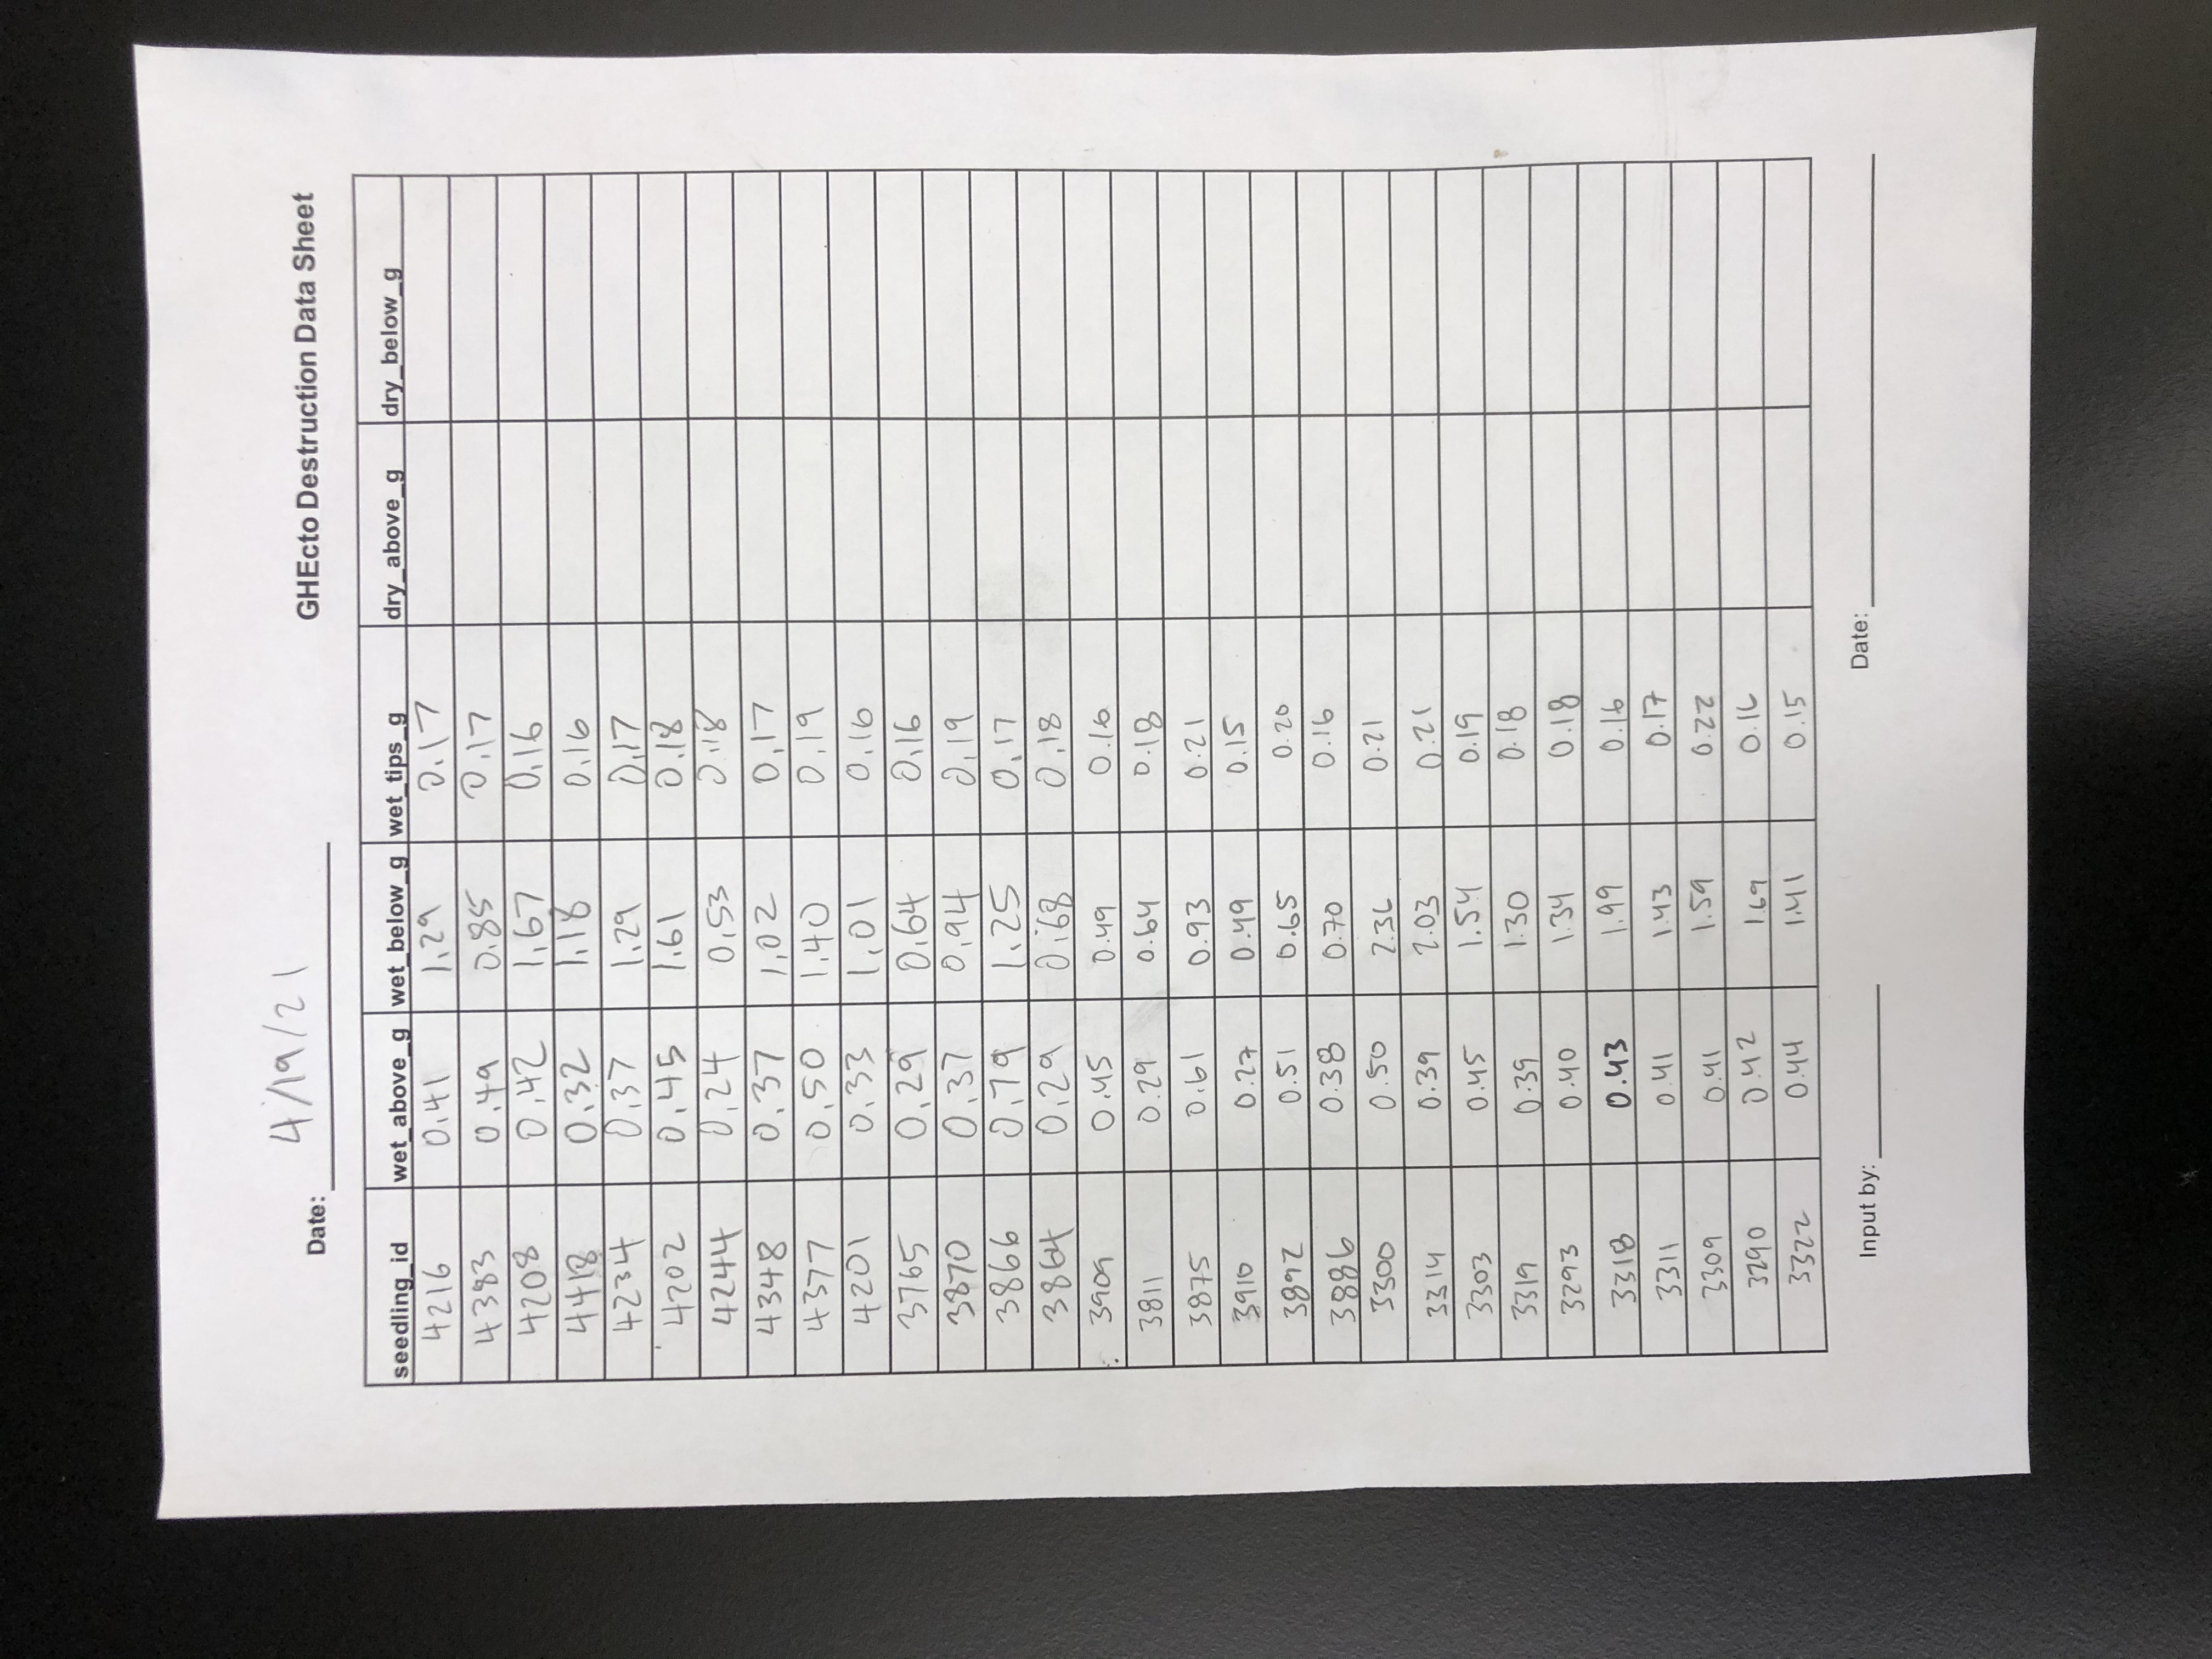 Date: 4/19/21 GHEcto Destruction Data Sheet
seedling_id wet_above_g wet_below_g wet_tips_g dry_above_g dry_below_g
4216 0.41 1.29 0.17
4383 0.49 0.85 0.17
4208 0.42 1.67 0.16
4418 0.32 1.18 0.16
4234 0.37 1.29 0.17
4202 0.45 1.61 0.18
4244 0.24 0.53 0.18
4348 0.37 1.02 0.17
4377 0.50 1.40 0.19
4201 0.33 1.01 0.16
3765 0.29 0.64 0.16
3870 0.37 0.94 0.19
3866 0.79 1.25 0.17
3864 0.29 0.68 0.18
3909 0.45 0.49 0.16
3811 0.29 0.64 0.18
3875 0.61 0.93 0.21
3910 0.27 0.49 0.15
3892 0.51 0.65 0.20
3886 0.38 0.70 0.16
3300 0.50 2.36 0.21
3314 0.39 2.03 0.21
3303 0.45 1.54 0.19
3319 0.39 1.30 0.18
3293 0.40 1.34 0.18
3318 0.43 1.99 0.16
3311 0.41 1.43 0.17
3309 0.41 1.59 0.22
3290 0.42 1.69 0.16
3322 0.44 1.41 0.15
Input by: Date: